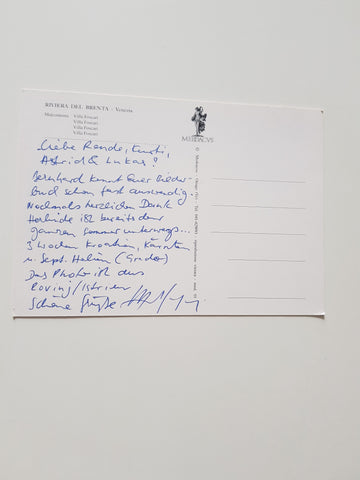 RIVIERA DEL BRENTA - Venezia
Malcontenta Villa Foscari
Villa Foscari
Villa Foscari
Villa Foscari
Liebe Renate, Kurti,
Astrid & Lukas!
Bernhard kennt Euer Bilder-
buch schon fast auswendig...
Nochmals herzlichen Dank
Herlinde ist bereits den
ganzen Sommer unterwegs...
3 Wochen Kroatien, Kärnten
u. Sept. Italien (Grado)
Das Photo ist aus
Rovinj/Istrien
Schöne Grüße